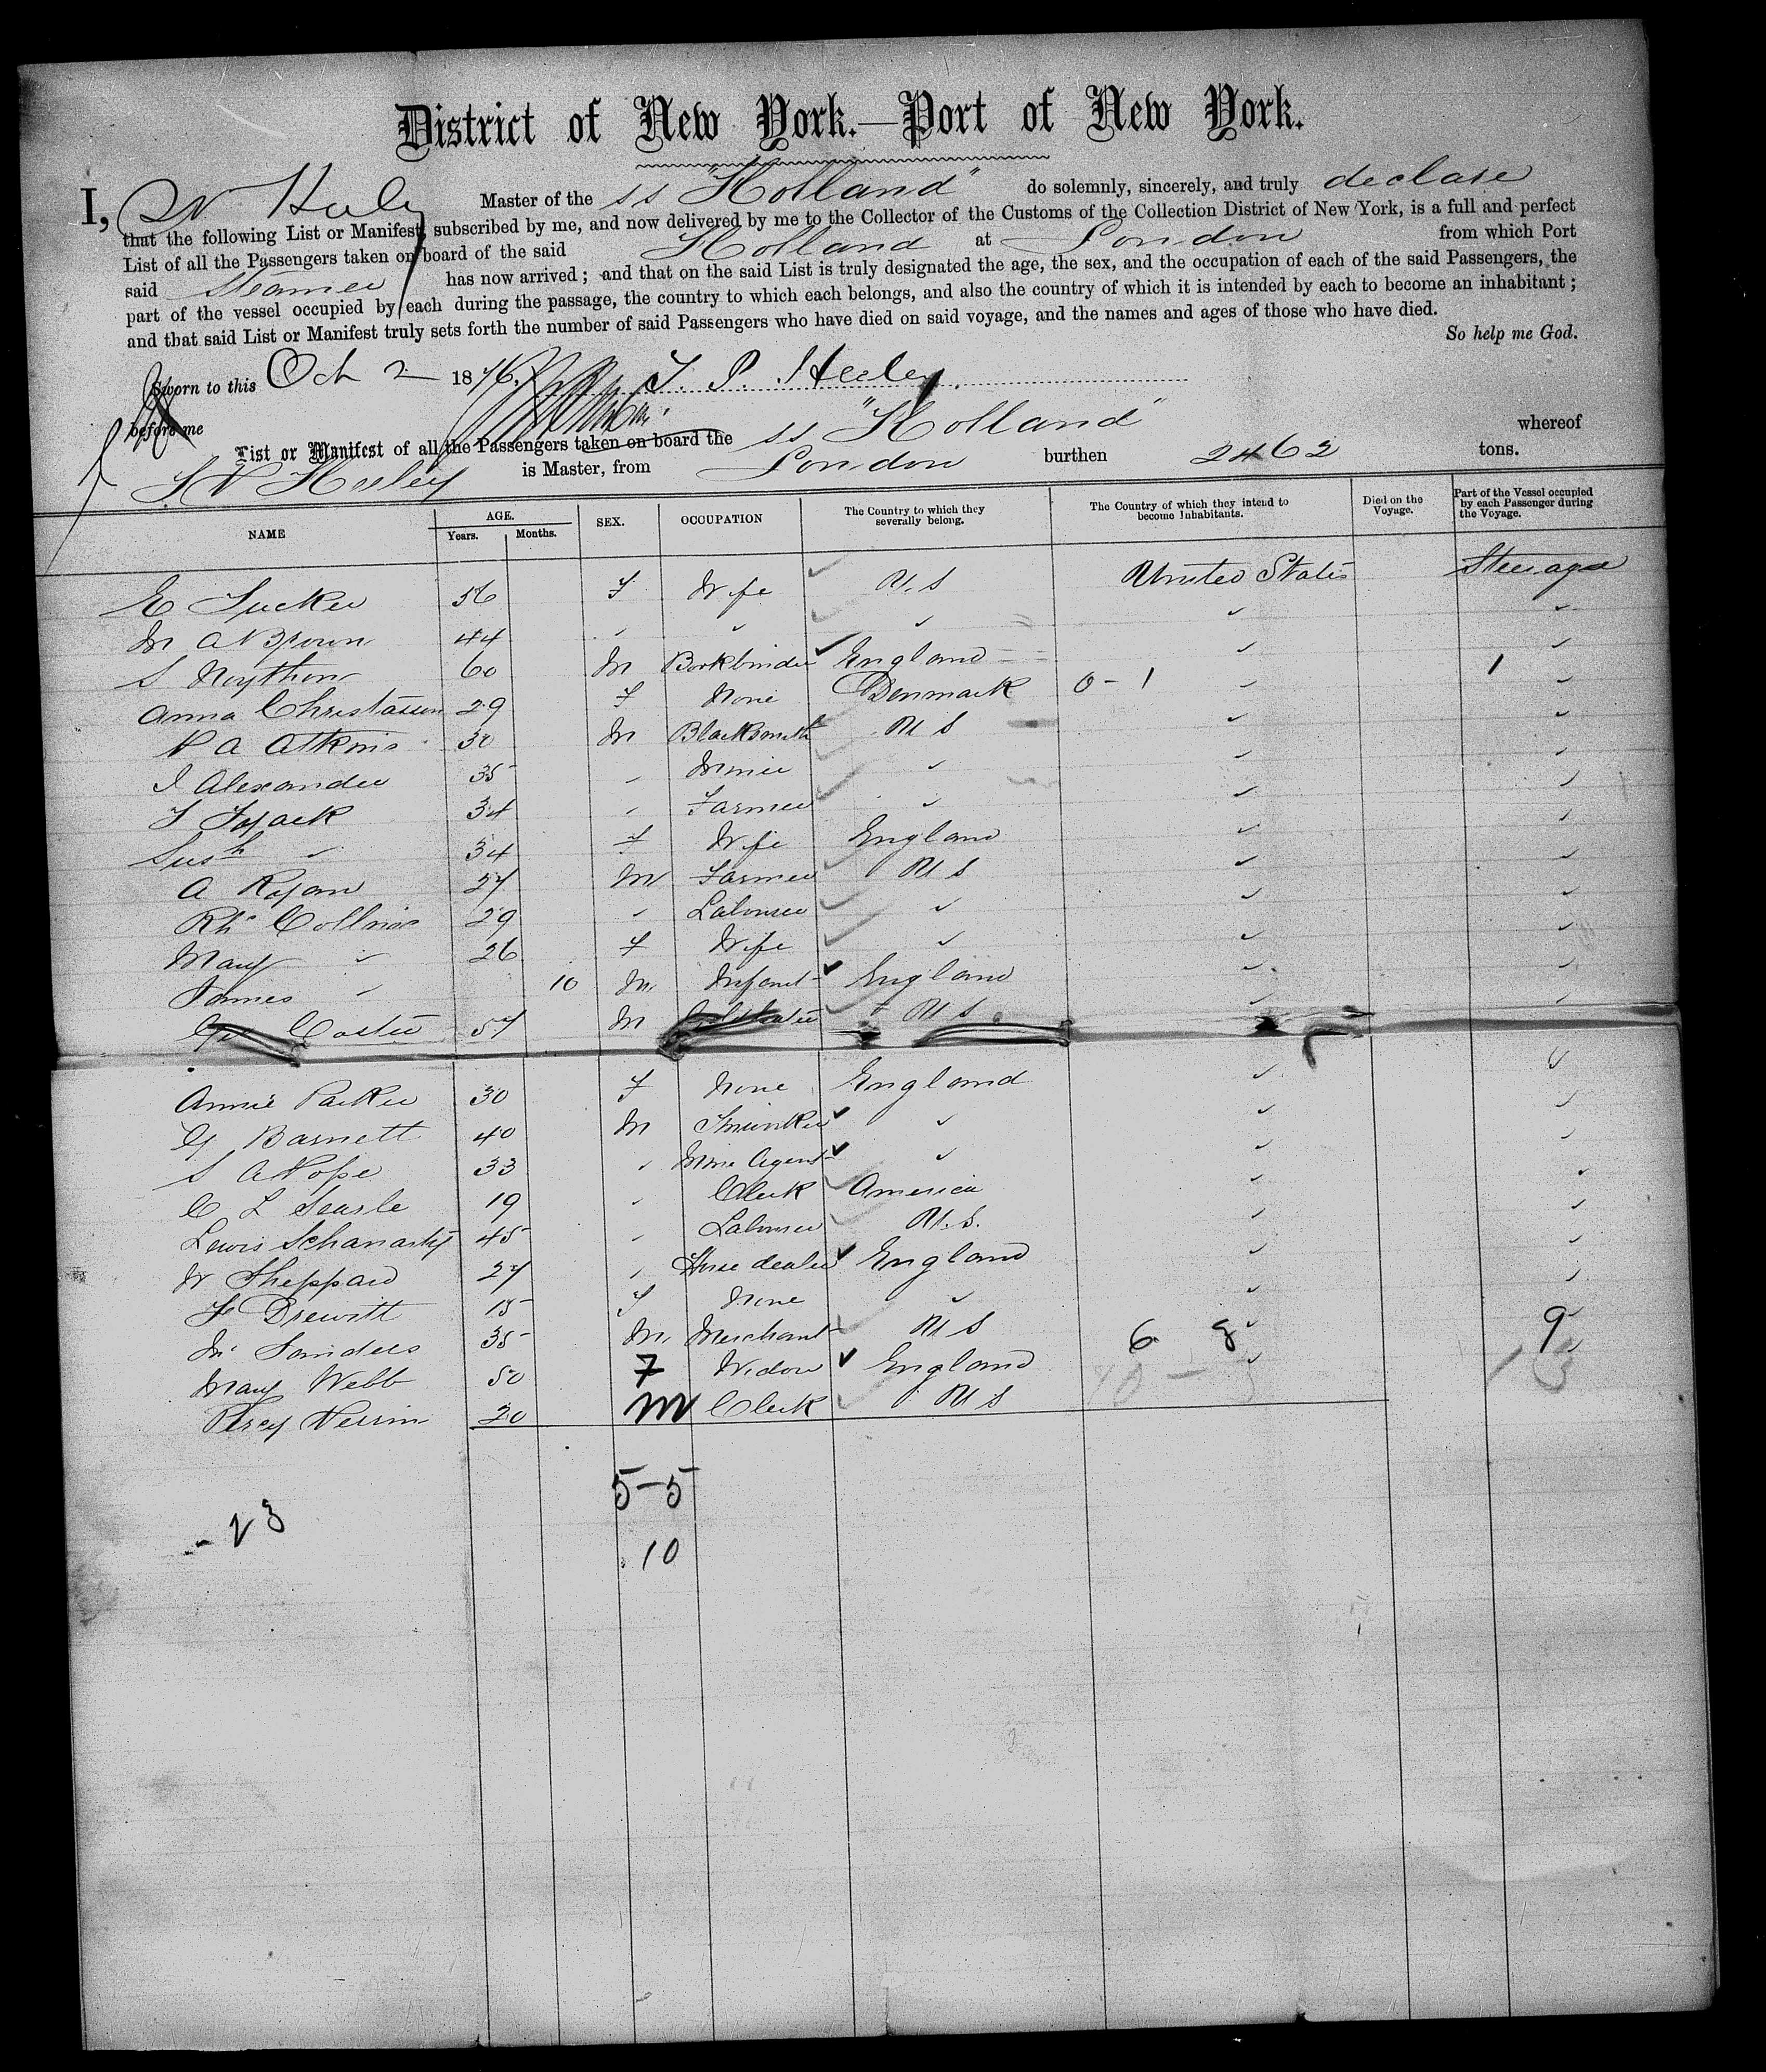 District of New York.—Port of New York.
I, Master of the SS "Holland" do solemnly, sincerely, and truly declare
that the following List or Manifest, subscribed by me, and now delivered by me to the Collector of the Customs of the Collection District of New York, is a full and perfect
List of all the Passengers taken on board of the said Holland at London from which Port
said Steamer has now arrived; and that on the said List is truly designated the age, the sex, and the occupation of each of the said Passengers, the
part of the vessel occupied by each during the passage, the country to which each belongs, and also the country of which it is intended by each to become an inhabitant;
and that said List or Manifest truly sets forth the number of said Passengers who have died on said voyage, and the names and ages of those who have died.
So help me God.
Sworn to this Oct 2 1876. Heeley
before me
List or Manifest of all the Passengers taken on board the SS "Holland" whereof
Heeley is Master, from London burthen 2462 tons.
NAME AGE. Years. Months. SEX. OCCUPATION The Country to which they severally belong. The Country of which they intend to become Inhabitants. Died on the Voyage. Part of the Vessel occupied by each Passenger during the Voyage.
E Tucker 56 F Wife U.S United States Steerage
M A Brown 44 " " " " "
S 60 M Bookbinder England " "
Anna Christassen 29 F None Denmark 0-1 " 1 "
A Atkins 30 M Blacksmith U S " "
I Alexander 35 " Miner " " "
34 " Farmer " " "
" 34 F Wife England " "
A Ryan 27 M Farmer U S " "
Rh Collins 29 " Labourer " " "
Mary " 26 F Wife " " "
James " 10 M Infant England " "
57 M U S " "
Annie Parker 30 F None England " "
G Barnett 40 M " " "
S A Pope 33 " Mine Agent " " "
C L Searle 19 " Clerk America " "
Lewis 45 " Labourer U.S. " "
W Sheppard 27 " Horse dealer England " "
F Drewitt 15 F None " " "
Sanders 35 M Merchant U S 6 8 " 9 "
Mary Webb 50 F Widow England "
Percy 20 M Clerk U S
5-5
23
10